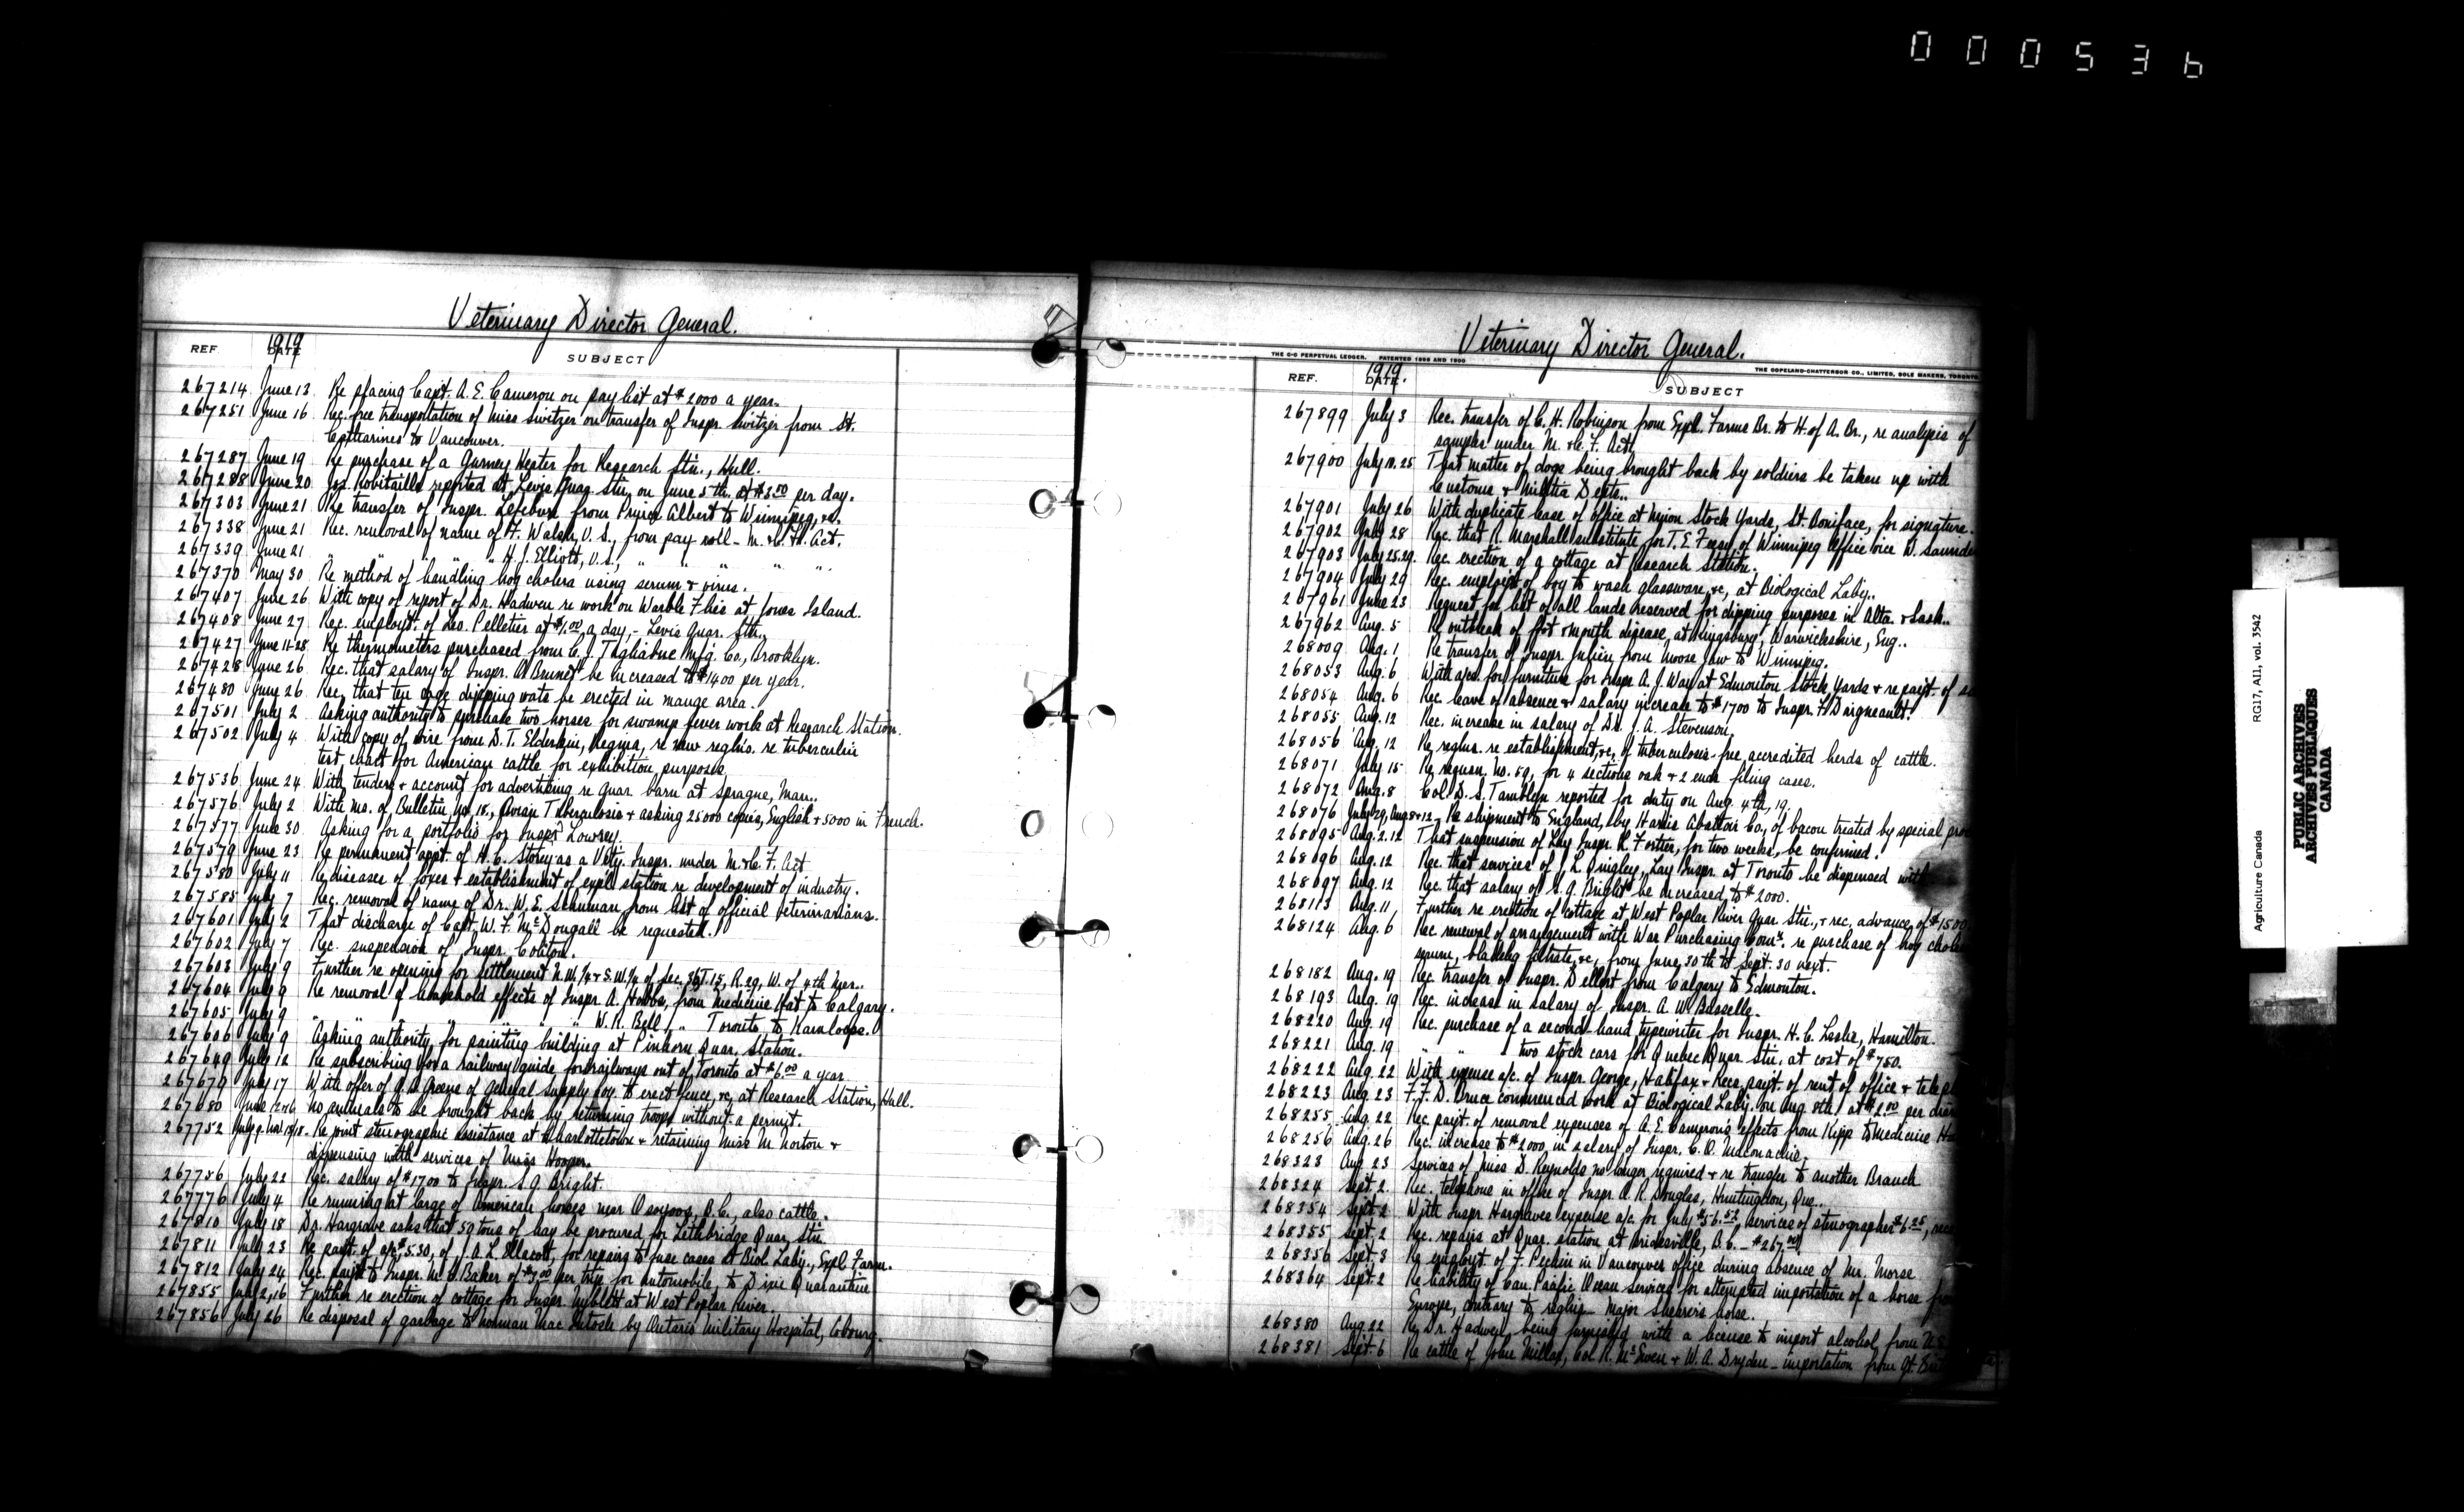 000536
Veterinary Director General.
REF 1919 DATE SUBJECT
267214 June 13 Re placing Capt. A. E. Cameron on pay list at $2000 a year.
267251 June 16 Rec. free transportation of Miss Switzer on transfer of Inspr. Switzer from St.
Catharines to Vancouver.
267287 June 19 Re purchase of a Gurney Heater for Research Stn., Hull.
267288 June 20 Jos. Robitaille reported at Levis Quar. Stn. on June 5th, at $3.50 per day.
267303 June 21 Re transfer of Inspr. Lefebvre from Prince Albert to Winnipeg, &c.
267338 June 21 Rec. removal of name of F. Walsh, V.S., from pay roll - M. & C. F. Act.
267339 June 21 " " " " H. J. Elliott, V.S., " " " " "
267370 May 30 Re method of handling hog cholera using serum & virus.
267407 June 26 With copy of report of Dr. Hadwen re work on Warble Flies at Jones Island.
267408 June 27 Rec. employt. of Leo. Pelletier at $1.00 a day, - Levis Quar. Stn.
267427 June 11-28 Re thermometers purchased from C. J. Tagliabue Mfg. Co., Brooklyn.
267428 June 26 Rec. that salary of Inspr. A. Brunet be increased to $1400 per year.
267480 June 26 Rec. that ten large dipping vats be erected in mange area.
267501 July 2 Asking authority to purchase two horses for swamp fever work at Research Station.
267502 July 4 With copy of wire from D. T. Elderkin, Regina, re new reg'ns. re tuberculin
test chart for American cattle for exhibition purposes.
267536 June 24 With tenders & account for advertising re Quar. barn at Sprague, Man..
267576 July 2 With Ms. of Bulletin No. 18, Avian Tuberculosis & asking 25000 copies, English & 5000 in French.
267577 June 30 Asking for a portfolio for Inspr. Lowrey.
267579 June 23 Re permanent appt. of H. C. Storey as a Vety. Inspr. under M. & C. F. Act
267580 July 11 Re diseases of foxes & establishment of exp'l station re development of industry.
267585 July 7 Rec. removal of name of Dr. W. E. Schuman from list of official veterinarians.
267601 July 2 That discharge of Capt. W. F. McDougall be requested.
267602 July 7 Rec. suspension of Inspr. Coliton.
267603 July 9 Further re opening for settlement N.W. 1/4 & S.W. 1/4 of Sec. 36, T. 15, R. 29, W. of 4th Mer..
267604 July 9 Re removal of household effects of Inspr. A. Hobbs, from Medicine Hat to Calgary.
267605 July 9 " " " " " " W. R. Bell " Toronto to Kamloops.
267606 July 9 Asking authority for painting building at Pinhorn Quar. Station.
267649 July 12 Re subscribing for a railway guide for railways out of Toronto at $6.00 a year
267679 July 17 With offer of J. A. Greene of General Supply Coy. to erect fence, &c, at Research Station, Hull.
267680 June 12&16 No animals to be brought back by returning troops without a permit.
267752 July 9. Re joint stenographic assistance at Charlottetown & retaining Miss M. Norton &
dispensing with services of Miss Hooper.
267756 July 22 Rec. salary of $1700 to Inspr. S. G. Bright.
267776 July 4 Re running at large of American horses near Osoyoos, B.C., also cattle.
267810 July 18 Dr. Hargrave asks that 50 tons of hay be procured for Lethbridge Quar. Stn.
267811 July 23 Re paymt. of a/c $5.30, of J. A. L. Ellacott, for repairs to fuse cases at Biol. Laby., Exp'l. Farm.
267812 July 24 Rec. paymt. to Inspr. M. C. Baker of $3.00 per trip for automobile, to Dixie Quarantine
267855 July 2,16 Further re erection of cottage for Inspr. Nyblett at West Poplar River.
267856 July 26 Re disposal of garbage to Norman MacIntosh by Ontario Military Hospital, Cobourg.
Veterinary Director General.
THE C-C PERPETUAL LEDGER. PATENTED 1896 AND 1900
THE COPELAND-CHATTERSON CO., LIMITED, SOLE MAKERS, TORONTO.
REF. 1919 DATE. SUBJECT
267899 July 3 Rec. transfer of C. H. Robinson from Exp'l. Farms Br. to H. of A. Br., re analysis of
samples under M. & C. F. Act.
267900 July 10. 25 That matter of dogs being brought back by soldiers be taken up with
Customs & Militia Depts..
267901 July 26 With duplicate lease of office at Union Stock Yards, St. Boniface, for signature.
267902 July 28 Rec. that R. Marshall substitute for T. E. of Winnipeg Office vice W. Saunde
267903 July 25.29. Rec. erection of a cottage at Research Station.
267904 July 29 Rec. employt. of boy to wash glassware, &c, at Biological Laby..
267961 June 23 Request for list of all lands reserved for dipping purposes in Alta. & Sask..
267962 Aug. 5 Re outbreak of foot & mouth disease, at Kingsbury, Warwickshire, Eng..
268009 Aug. 1 Re transfer of Inspr. Julien from Moose Jaw to Winnipeg.
268053 Aug. 6 With a/c. for furniture for Inspr. A. J. Way at Edmonton Stock Yards & re paymt. of
268054 Aug. 6 Rec. leave of absence & salary increase to $1700 to Inspr. F. Daigneault.
268055 Aug. 12 Rec. increase in salary of Dr. J. A. Stevenson.
268056 Aug. 12 Re regl'ns. re establishment, &c, of tuberculosis-free accredited herds of cattle.
268071 July 15 Re requsn. No. 59, for 4 sections oak & 2 ends filing cases.
268072 Aug. 8 Col. D. S. Tamblyn reported for duty on Aug. 4th, 19.
268076 July 29, Aug 8&12. Re shipment to England, by Harris Abattoir Co., of bacon treated by special pro
268095 Aug. 2.12 That suspension of Lay Inspr. R. Fortier, for two weeks, be confirmed.
268096 Aug. 12 Rec. that services of J. L. Quigley, Lay Inspr. at Toronto be dispensed with.
268097 Aug. 12 Rec. that salary of S. G. Bright be increased to $2000.
268113 Aug. 11, Further re erection of cottage at West Poplar River Quar. Stn., & rec. advance of $1500
268124 Aug. 6 Rec. renewal of arrangement with War Purchasing Comn. re purchase of hog chol
serum, blackleg filtrate, &c, from June 30th to Sept. 30 next.
268182 Aug. 19 Rec. transfer of Inspr. Dellert from Calgary to Edmonton.
268193 Aug. 19 Rec. increase in salary of Inspr. A. W. Basselle.
268220 Aug. 19 Rec. purchase of a second-hand typewriter for Inspr. H. C. Leslie, Hamilton.
268221 Aug. 19 " " " two stock cars for Quebec Quar. Stn. at cost of $750.
268222 Aug. 22 With expense a/c. of Inspr. George, Halifax & Recs. paymt. of rent of office & tele
268223 Aug. 23 F. F. D. Bruce commenced work at Biological Laby. on Aug. 8th, at $2.00 per diem
268255 Aug. 22 Rec. paymt. of removal expenses of A. E. Cameron's effects from Kipp to Medicine Ha
268256 Aug. 26 Rec. increase to $2000, in salary of Inspr. C. O. Maconachie.
268323 Aug 23 Services of Miss D. Reynolds no longer required & re transfer to another Branch
268324 Sept. 2. Rec. telephone in office of Inspr. A. R. Douglas, Huntingdon, Que..
268354 Sept. 2 With Inspr. Hargrave's expense a/c. for July $56.52 services of stenographer $6.25,
268355 Sept. 2 Rec. repairs at Quar. Station at Bridesville, B.C. - $267.00
268356 Sept. 3 Re employt. of F. Peckin in Vancouver office during absence of Mr. Morse
268364 Sept. 2 Re liability of Can. Pacific Ocean Services for attempted importation of a horse from
Europe, contrary to reg'ns - Major Shearer's horse.
268380 Aug. 22 Re Dr. Hadwen being furnished with a license to import alcohol, from U.S.
268381 Sept. 6 Re cattle of John Millar, Col. R. McEwen & W. A. Dryden - importation from Gt. Brit
Agriculture Canada RG17, AII, vol. 3542
PUBLIC ARCHIVES
ARCHIVES PUBLIQUES
CANADA